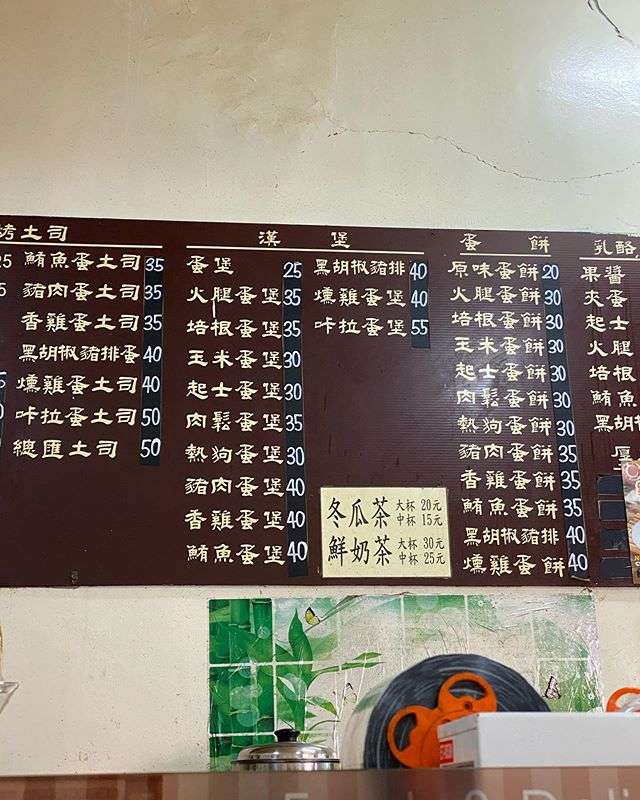 烤土司
鮪魚蛋土司 35
豬肉蛋土司 35
香雞蛋土司 35
黑胡椒豬排蛋 40
燻雞蛋土司 40
咔拉蛋土司 50
總匯土司 50
漢堡
蛋堡 25
火腿蛋堡 35
培根蛋堡 35
玉米蛋堡 30
起士蛋堡 30
肉鬆蛋堡 35
熱狗蛋堡 30
豬肉蛋堡 40
香雞蛋堡 40
鮪魚蛋堡 40
黑胡椒豬排 40
燻雞蛋堡 40
咔拉蛋堡 55
冬瓜茶 大杯 20元
中杯 15元
鮮奶茶 大杯 30元
中杯 25元
蛋餅
原味蛋餅 20
火腿蛋餅 30
培根蛋餅 30
玉米蛋餅 30
起士蛋餅 30
肉鬆蛋餅 30
熱狗蛋餅 30
豬肉蛋餅 35
香雞蛋餅 35
鮪魚蛋餅 35
黑胡椒豬排 40
燻雞蛋餅 40
乳酪
果醬
夾蛋
起士
火腿
培根
鮪魚
黑胡